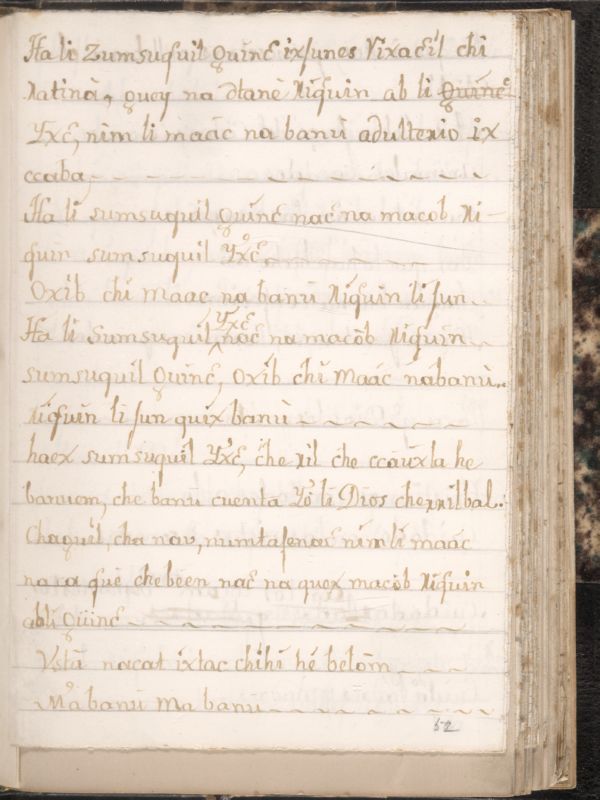 Ha li Zumsuquil Quinc ixjunes Vixacîl chi
Xatinà, quey na dtanè Xiquin ab li Quinc
Yxc, nim li maàc na banu adulterio ix
ccaba,
Ha li sumsuquil Quinc nac na macob Xi-
quin sumsuquil Yxc
Oxib chi maac na banu Xiquin li jun
Ha li Sumsuquil Yxc nac na macòb Xiquin
sumsuquil Quinc, Oxib chi Maàc nabanu
Xiquin li jun quix banu
haex sumsuquil Yxc, che xil che ccauxla he
banuom, che banu cuenta Yò li Dios chexxilbal.
Chaquil, cha nav, nim li maàc
na a què chebeen nac na quex macòb Xiquin
abli Quinc
Vstà nacat ixtac chihi hè belòm
Mà banu ma banu
52